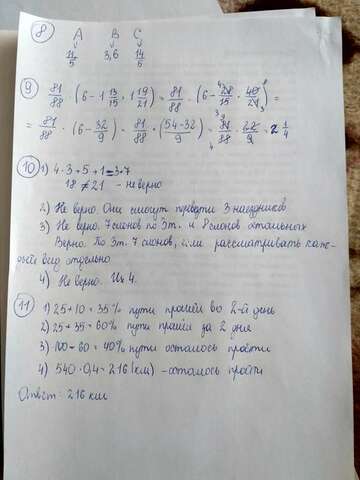 8 A B C
↓ ↓ ↓
11/5 3,6 14/5
9 81/88 · (6 - 1 13/15 · 1 19/21) = 81/88 · (6 - 28/15 · 40/21) =
= 81/88 · (6 - 32/9) = 81/88 · (54-32/9) = 81/88 · 22/9 = 2 1/4
10 1) 4·3+5+1=3·7
18 ≠ 21 - неверно
2) Не верно. Они смогут 3 наездников
3) Не верно. 7 слонов по 3т. и 8 слонов остальных
Верно. По 3т. 7 слонов, если рассматривать каж-
дый вид отдельно
4) Не верно. Их 4.
11 1) 25+10=35% пути прошли во 2-й день
2) 25+35=60% пути прошли за 2 дня
3) 100-60=40% пути осталось пройти
4) 540·0,4=216 (км) - осталось пройти
Ответ: 216 км